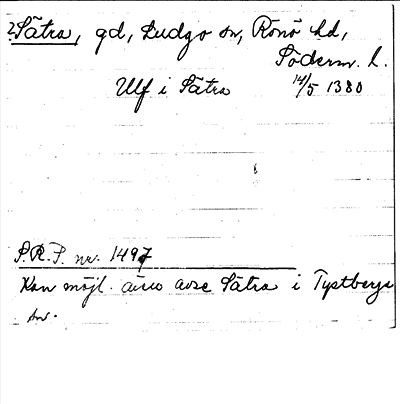 2. Sätra, gd, Ludgo sn, Rönö hd,
Söderm. l.
Ulf i Sätra 14/5 1380
S.R.P. nr. 1497
Kan möjl. även avse Sätra i Tystberga
sn.